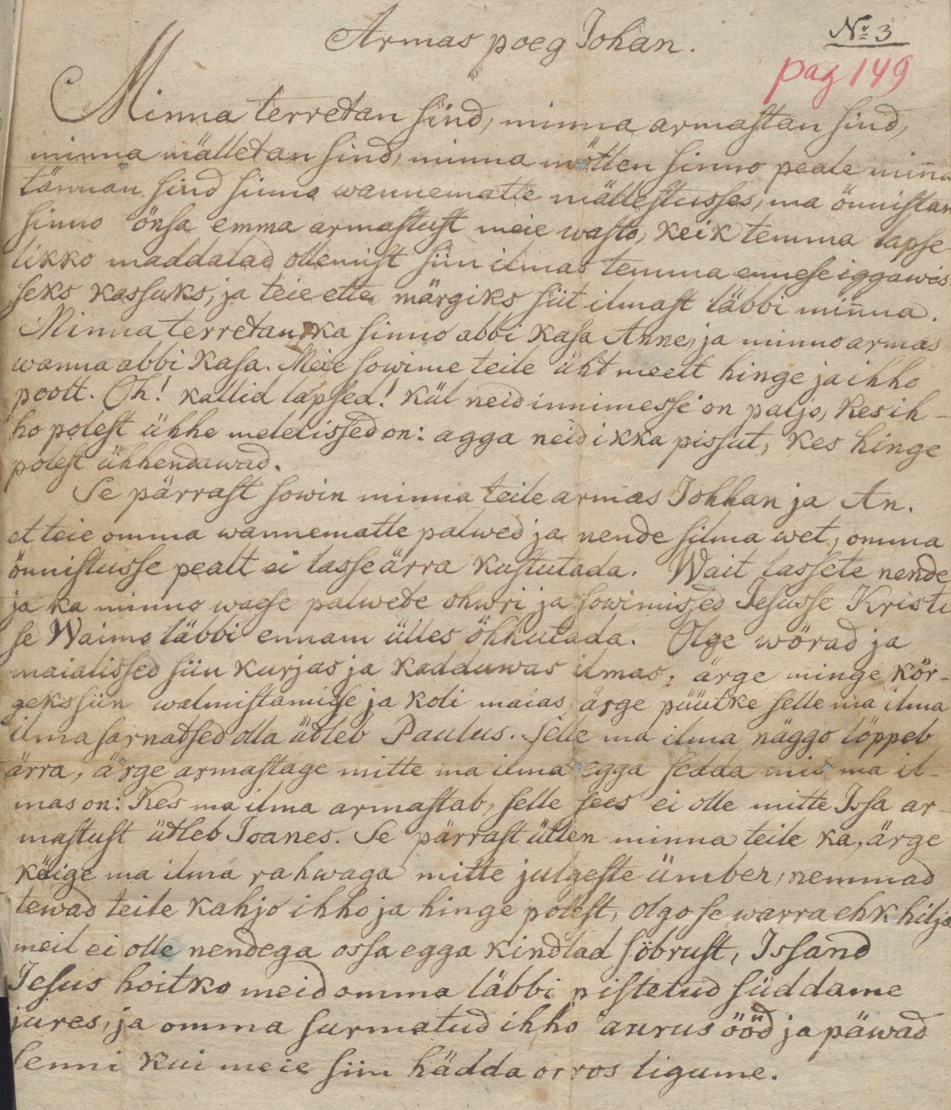 Armas poeg Johan.
No 3
pag 149
Minna terretan sind, minna armastan sind,
minna mälletan sind, minna mötlen sinno peale minna
tännan sind sinno wannematte mällestusses, ma önnistan
sinno önsa emma armastust meie wasto, keik temma lapse
likko maddalad ollemist siin ilmas temma ennese iggawes
seks kassuks, ja teie ette märgiks siit ilmast läbbi minna.
Minna terretan ka sinno abbi kasa Anne, ja minno armas
wanna abbi kasa. Meie sowime teile üht meelt hinge ja ihho
poolt. Oh! kallid lapsed! kül neid innimesse on paljo, kes ih-
ho polest ühhe melelissed on: agga neid ikka pissut, kes hinge
polest ühhendawad.
Se pärrast sowin minna teile armas Johhan ja An.
et teie omma wannematte palwed ja nende silma wet, omma
önnistusse pealt ei lasse ärra kustutada. Wait lassete nende
ja ka minno waese palwede ohwri ja sowimised Jesusse Kristu
se Waimo läbbi ennam ülles öhhutada. Olge wörad ja
maialissed siin kurjas ja kadduwas ilmas, ärge minge kör-
geks siin walmistamisse ja koli maias ärge püütke selle ma ilma
ilma sarnatsed olla ütleb Paulus. Selle ma ilma näggo löppeb
ärra, ärge armastage mitte ma ilma egga sedda mis ma il-
mas on: Kes ma ilma armastab, selle sees ei olle mitte Issa ar
mastust ütleb Joanes. Se pärrast ütlen minna teile ka, ärge
käige ma ilma rahwaga mitte julgeste ümber, nemmad
tewad teile kahjo ihho ja hinge polest, olgo se warra ehk hilja
meil ei olle nendega ossa egga kindlad söbrust, Issand
Jesus hoitko meid omma läbbi pistetud süddame
jures, ja omma surmatud ihho aurus ööd ja päwad
senni kui meie siin hädda orros ligume.